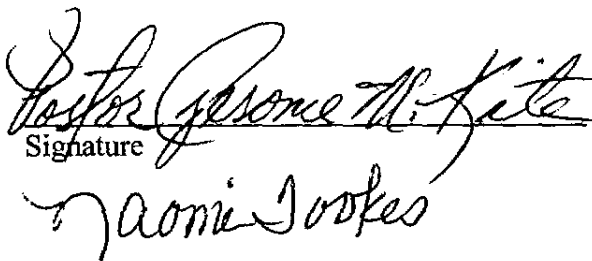 Pastor Jerome M. Kite
Signature
Naomi Tookes